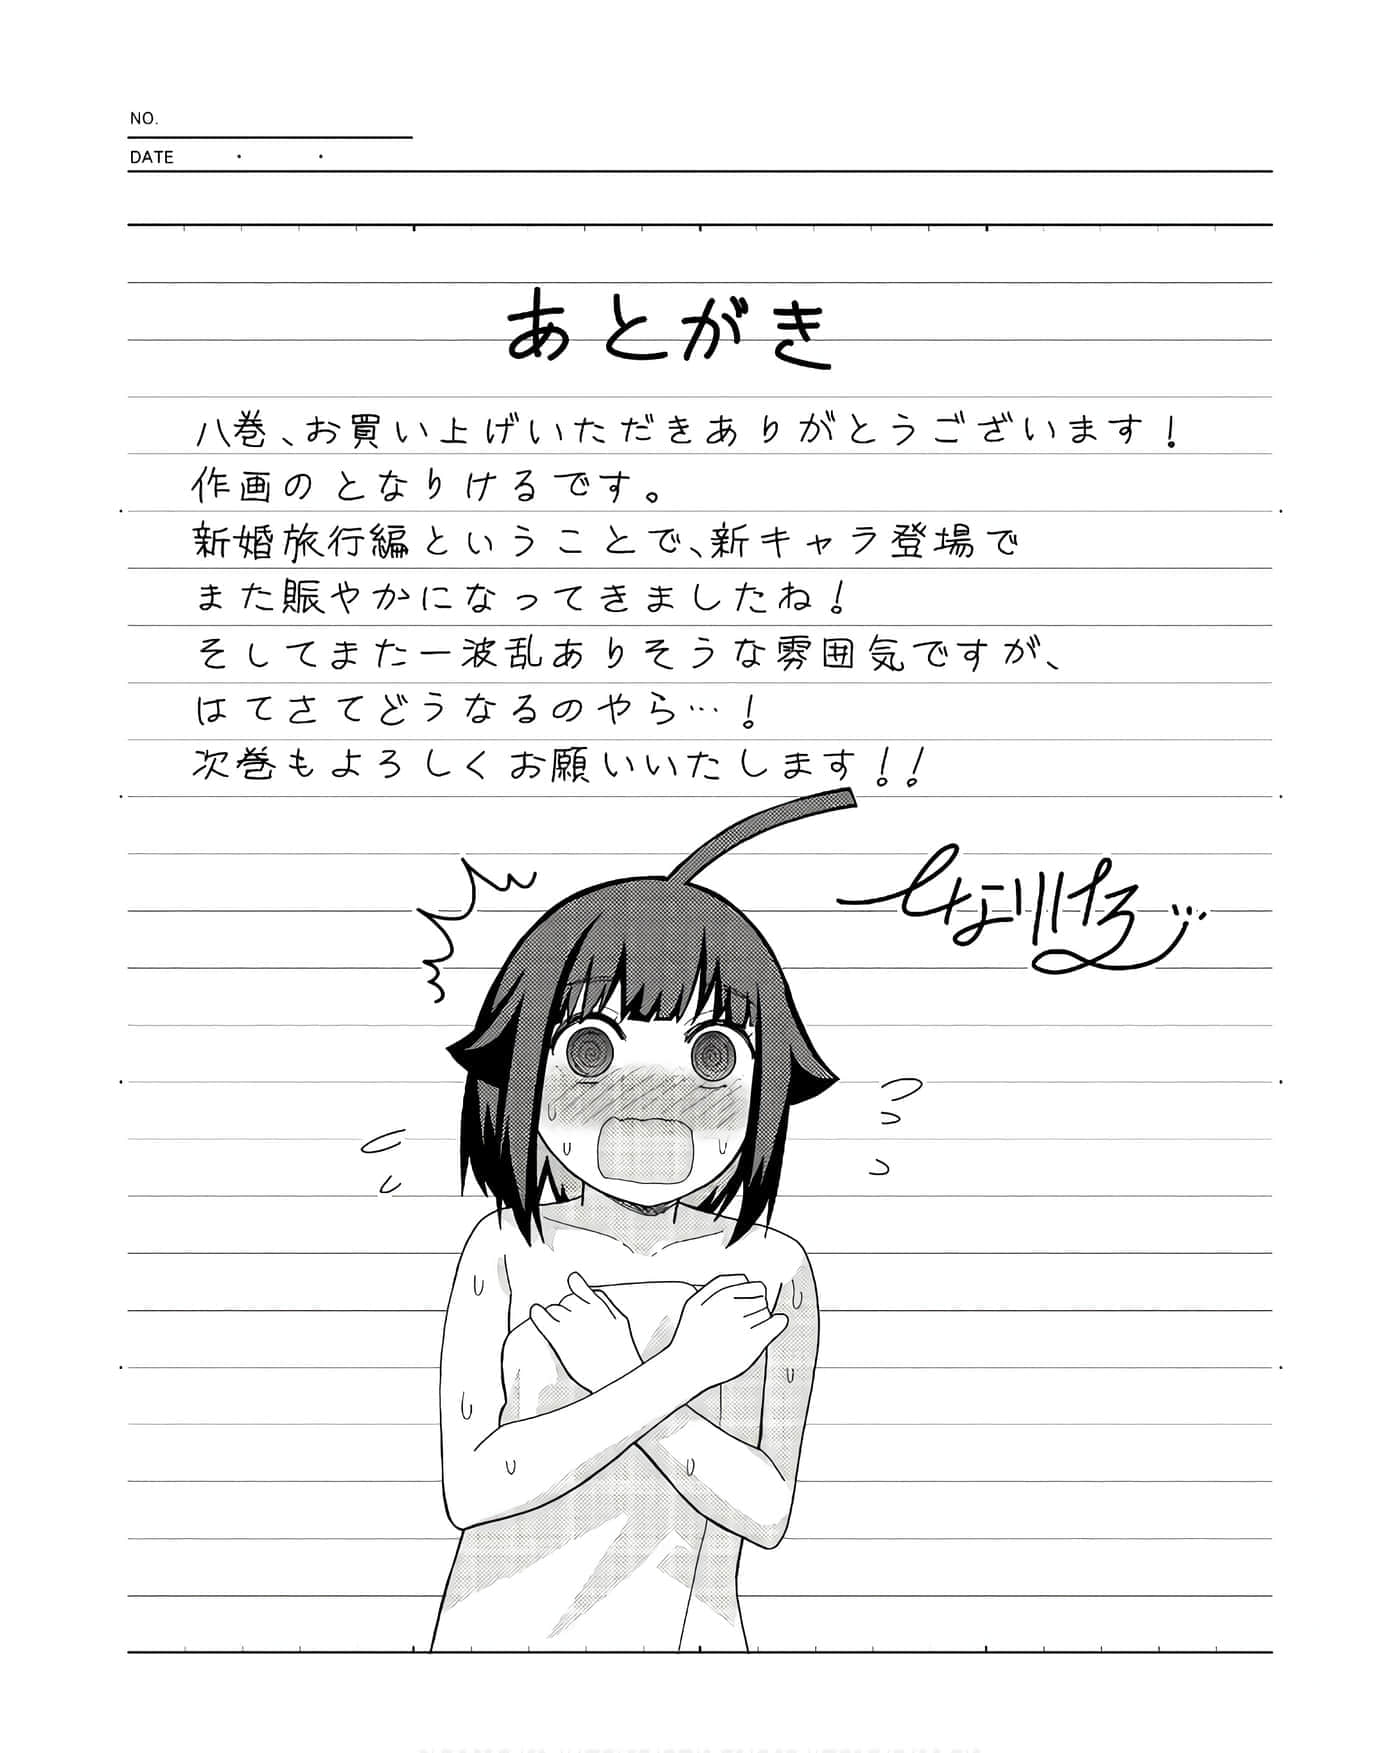 NO.
DATE
あとがき
八巻、お買い上げいただきありがとうございます！
作画のとなりけるです。
新婚旅行編ということで、新キャラ登場で
また賑やかになってきましたね！
そしてまた一波乱ありそうな雰囲気ですが、
はてさてどうなるのやら…！
次巻もよろしくお願いいたします！！
となりける